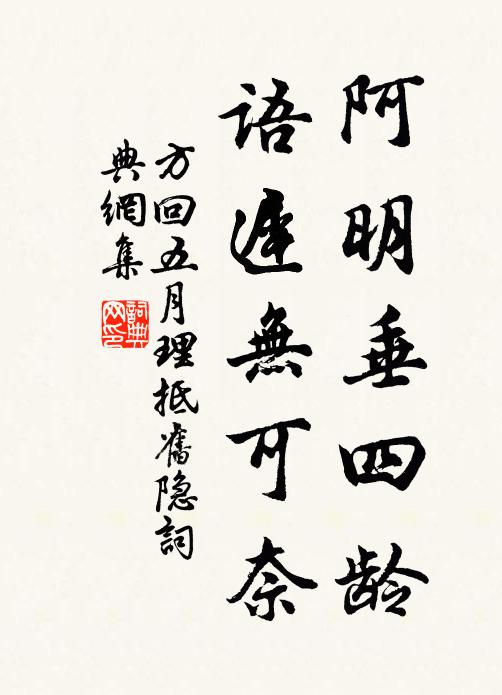 阿明垂四龄
語遲無可奈
方回五月理抵舊隐詞
典網集
詞典网印